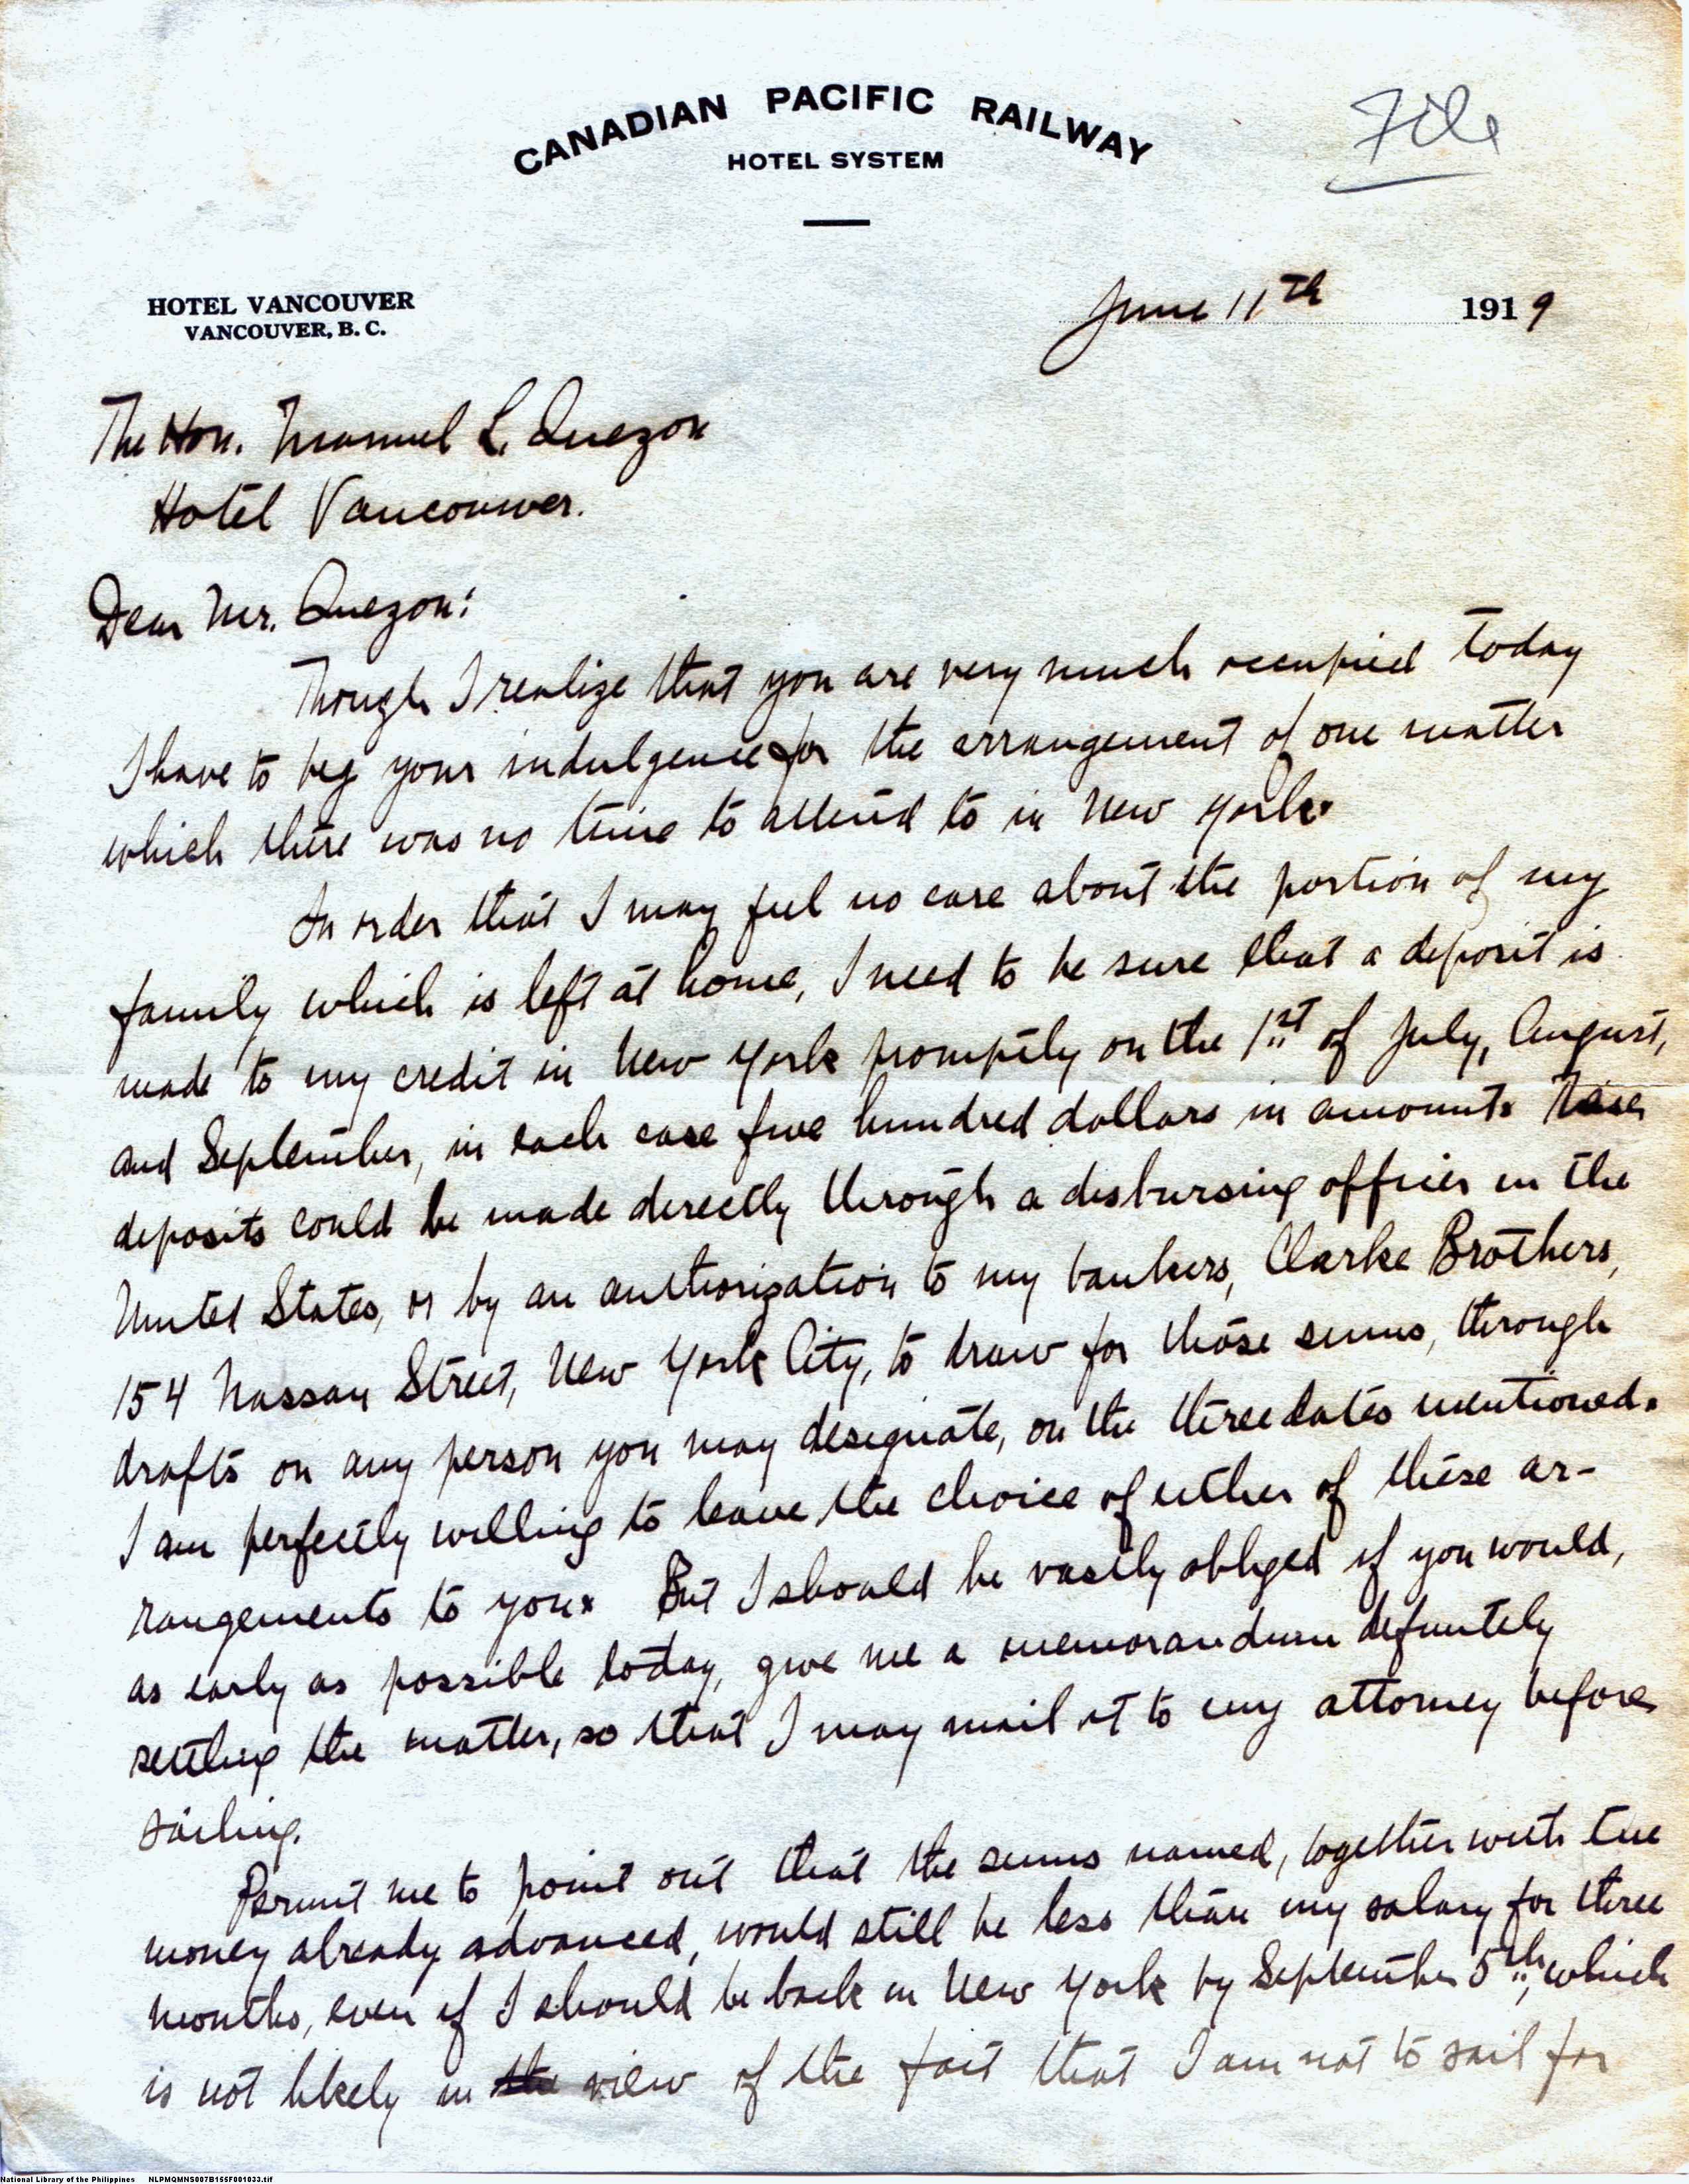 CANADIAN PACIFIC RAILWAY
HOTEL SYSTEM
File
HOTEL VANCOUVER
VANCOUVER, B. C.
June 11th 1919
The Hon. Manuel L. Quezon
Hotel Vancouver.
Dear Mr. Quezon:
Though I realize that you are very much occupied today
I have to beg your indulgence for the arrangement of one matter
which there was no time to attend to in New York.
In order that I may feel no care about the portion of my
family which is left at home, I need to be sure that a deposit is
made to my credit in New York promptly on the 1st of July, August,
and September, in each case five hundred dollars in amount. These
deposits could be made directly through a disbursing officer in the
United States, or by an authorization to my bankers, Clarke Brothers,
154 Nassau Street, New York City, to draw for those sums, through
drafts on any person you may designate, on the three dates mentioned.
I am perfectly willing to leave the choice of either of these ar-
rangements to you. But I should be vastly obliged if you would,
as early as possible today, give me a memorandum definitely
settling the matter, so that I may mail it to my attorney before
sailing.
Permit me to point out that the sums named, together with the
money already advanced, would still be less than my salary for three
months, even if I should be back in New York by September 5th, which
is not likely in the view of the fact that I am not to sail for
National Library of the Philippines NLPMQMNS007B155F001033.tif